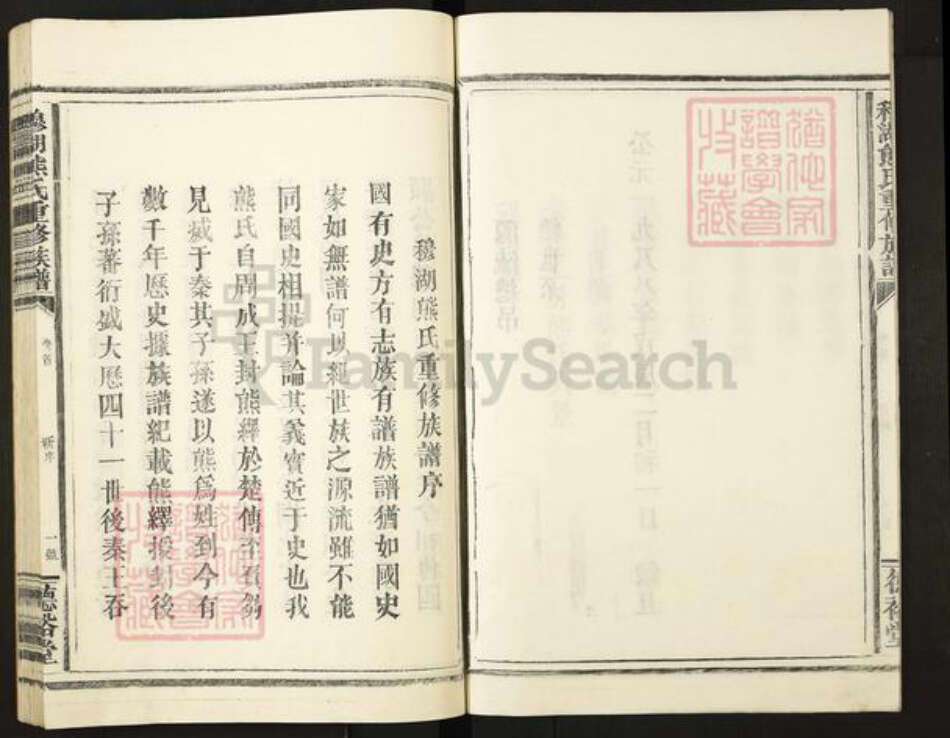 穆湖熊氏重修族譜
穆湖熊氏重修族譜序
國有史方有志族有譜族譜猶如國史
家如無譜何以經世族之源流雖不能
同國史相提并論其義實近于史也我
熊氏自周成王封熊繹於楚傳至負芻
見烕于秦其子孫遂以熊爲姓到今有
數千年歷史據族譜紀載熊繹援封後
子孫蕃衍盛大歷四十一世後秦王吞
穆湖熊氏重修族譜
卷首
新序
一號
裕堂
FamilySearch